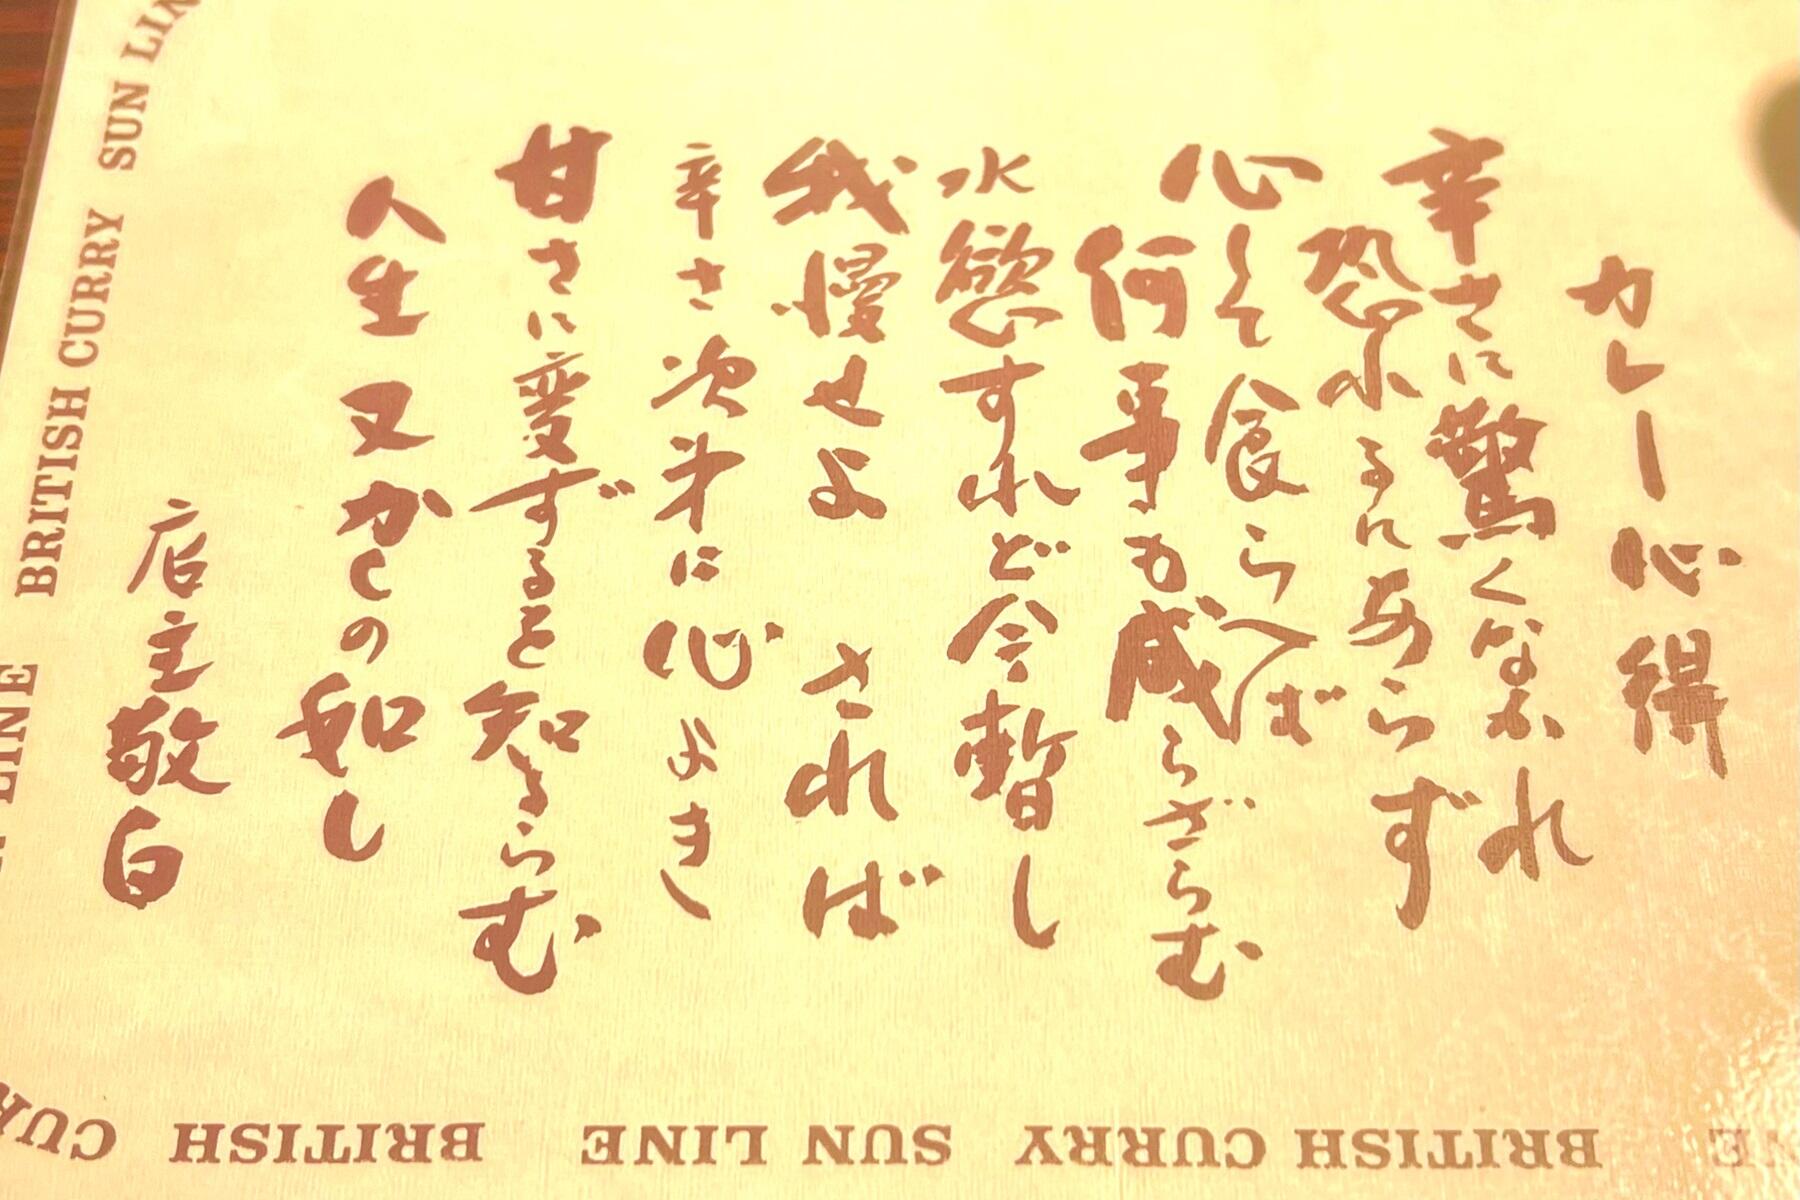 カレー心得
辛さに驚くなかれ
恐れるにあらず
心して食らへば
何事も感らざらむ
水慾すれど今暫し
我慢せよ　されば
辛さ次第に心よき
甘さに変ずるを知るらむ
人生又かくの如し
店主敬白
SUN LIN
BRITISH CURRY
LINE
CUR
BRITISH
SUN LINE
BRITISH CURRY